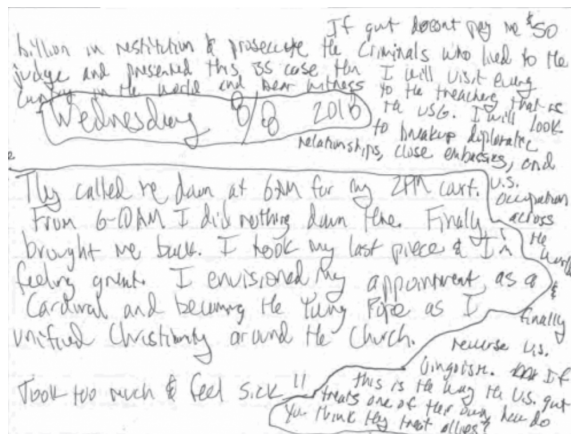 If gut doesnt pay me $50
billion in restitution & prosecute the Criminals who lied to the
judge and presented this BS case then I will visit every
in the world and bear witness to the treachery that is
the USG. I will look
to breakup diplomatic
relationships, close embassies, end
U.S.
occupation
across
the world
&
finally
reverse U.S.
jingoism. If
this is the way the U.S. gut
treats one of their own, how do
you think they treat allies?
Wednesday 8/8 2018
They called me down at 6AM for my 2PM court.
From 6-10AM I did nothing down there. Finally
brought me back. I took my last piece & I'm
feeling great. I envisioned my appointment as a
Cardinal and becoming the Young Pope as I
unified Christianity around the Church.
Took too much & feel sick!!